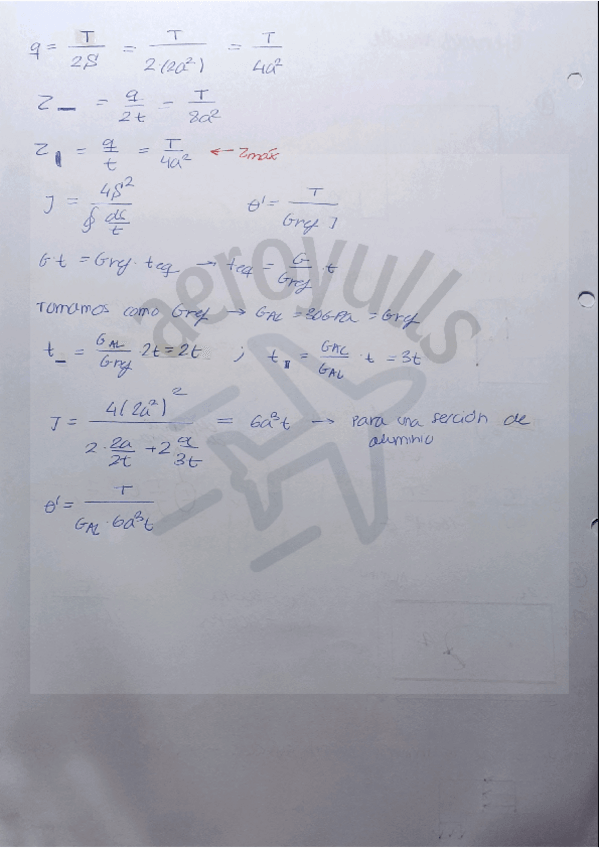 q = T/2S = T/2·(2a²) = T/4a²
Z_ = q/2t = T/8a²
Z| = q/t = T/4a² ← Zmáx
J = 4S²/∮ds/t θ' = T/Gref J
G·t = Gref·teq → teq = G/Gref·t
Tomamos como Gref → GAL = 30GPa = Gref
t_ = GAL/Gref·2t = 2t ; t|| = GAC/GAL·t = 3t
J = 4(2a²)²/2·2a/2t + 2a/3t = 6a³t → Para una sección de
aluminio
θ' = T/GAL·6a³t
aeroyulls